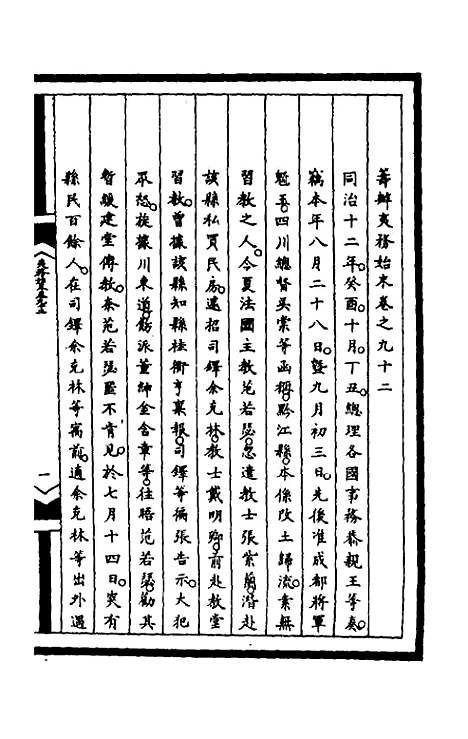 籌辦夷務始末卷之九十二
同治十二年。癸酉。十月。丁丑。總理各國事務恭親王等奏。
竊本年八月二十八日。暨九月初三日。先後准成都將軍
魁玉。四川總督吳棠等函稱。黔江縣。本係改土歸流。素無
習教之人。今夏法國主教范若瑟。忽遣教士張紫蘭。潛赴
該縣私買民房。遂招司鐸余克林。教士戴明卿。前赴教堂
習教。曾據該縣知縣桂衢亨稟報。司鐸等徧張告示。大犯
眾怒。旋據川東道。飭派董紳金含章等。往晤范若瑟。勸其
暫緩建堂傳教。奈范若瑟匿不肯見。於七月十四日。突有
縣民百餘人。在司鐸余克林等寓前。適余克林等出外遇
一